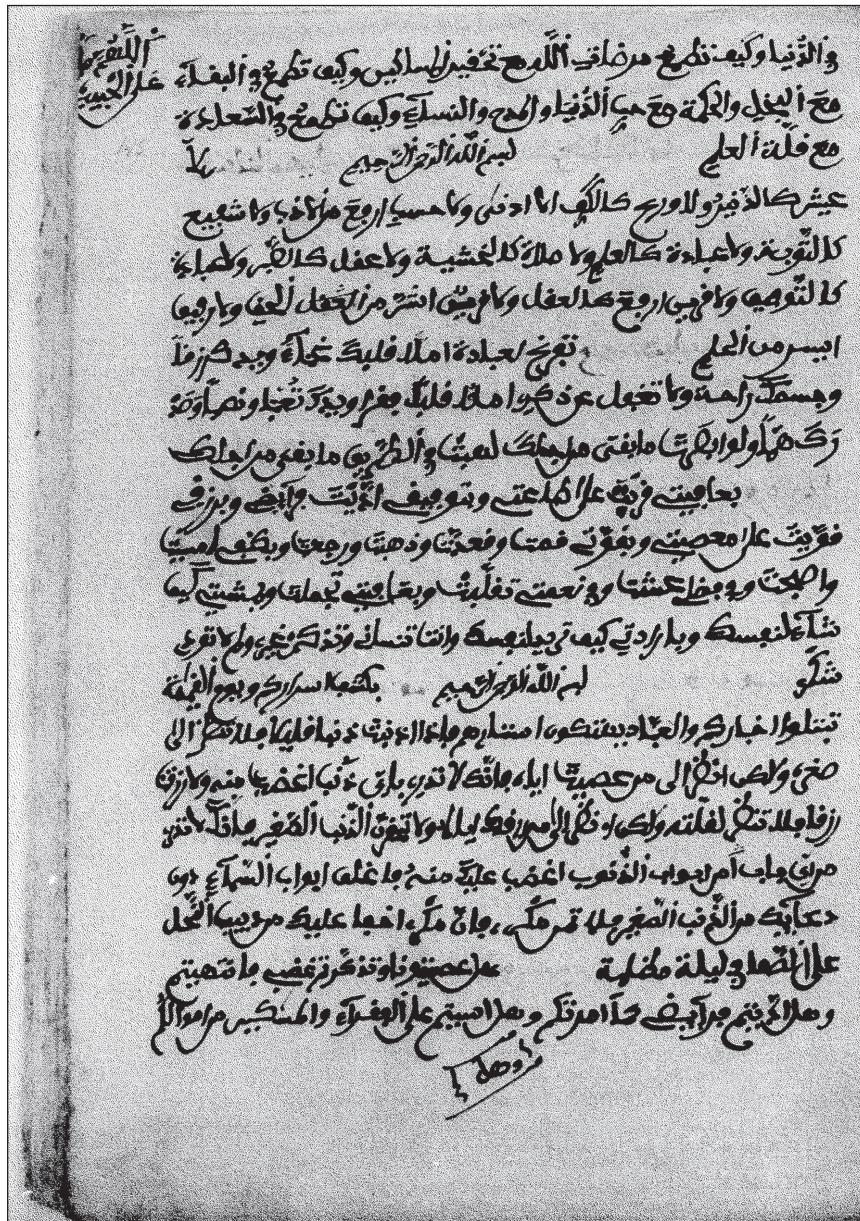 اللهم صل
على الحبيب
في الدنيا وكيف تطمع مرضات الله مع تحفير المساكين وكيف تطمع في البقاء
مع البخل والحكمة مع حب الدنيا والمدح والنساء وكيف تطمع في السعادة
مع قلة العلم بسم الله الرحمن الرحيم لا
عيش كالتدبير ولا ورع كالكف ولا حسب ارفع من الادب ولا شفيع
كالتوبة ولا عبادة كالعلم ولا صلاة كالخشية ولا عقل كالصبر ولا عبادة
كالتوفيق ولا قرين ارفع كالعقل ولا قرين من العقل ولا رفيق
ايسر من العلم تفرغ لعبادة املا قلبك غناء ويدك رزقا
وجسمك راحة ولا تغفل عن ذكري املا قلبك فقرا وبدنك تعبا ونصبا
همّا ولو ابصرت ما بقى من اجلك
بعافيتي قويت على طاعتي وبتوفيق اديت فرايض وبرزقي
قويت على معصيتي وبقوتي قمت وقعدت وذهبت ورجعت وبكنفي امسيت
واصبحت وفي فضلي عشت وفي نعمتي تقلبت وبعافيتي تجملت وبمشيتي كيف
شاء لنفسك وبارادتي كيف تريد لنفسك وانت تنساني وتذكر غيري ولم لا تؤدي
شكر بسم الله الرحمن الرحيم يكشف اسراركم ويوم القيمة
تبتلوا اخباركم والعباد يهتكون استاركم فاذا اذنبت ذنبا قليلا فلا تنظر الى
صغره ولاكن انظر الى من عصيت اياه فانك لا تدري باي ذنب اغضبه منه ولا رزقت
رزقا فلا تنظر لقلته ولاكن انظر الى من رزقك اياه ولا تحقرن الذنب الصغير فانك لا تدري
من اي باب من ابواب الذنوب اغضب عليك منه فاغلق ابواب السماء دون
دعايك من الذنب الصغير فلا تمن مكري فان مكري اخفا عليك من دبيب النحل
على الصفا في ليلة مظلمة هل عصيتموني وتذكرتم غضبي فانتهيتم
وهل اديتم فرايض كما امرتكم وهل اسيتم على الفقراء والمسكين من اموالكم
وهل